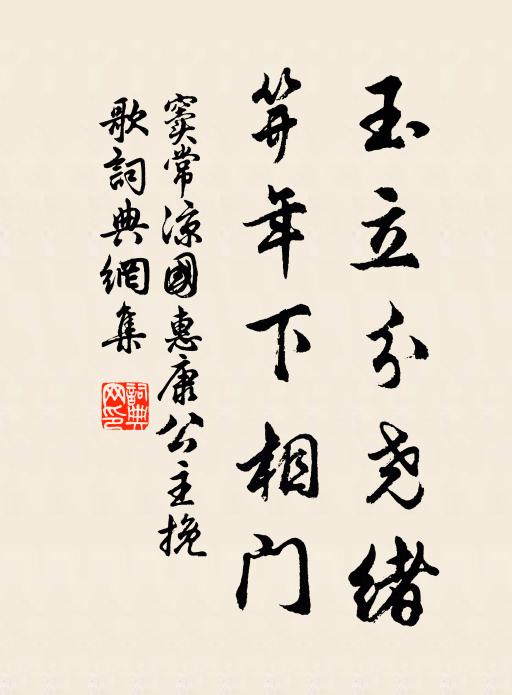 玉立分尧緒
笄年下相门
窦常凉國惠康公主挽
歌詞典網集
詞典
网印